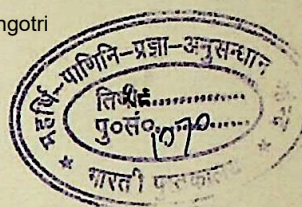 ngotri
महर्षि-पाणिनि-प्रज्ञा-अनुसन्धान
पु०सं०.....1070.....
* भारती पुस्तकालय *